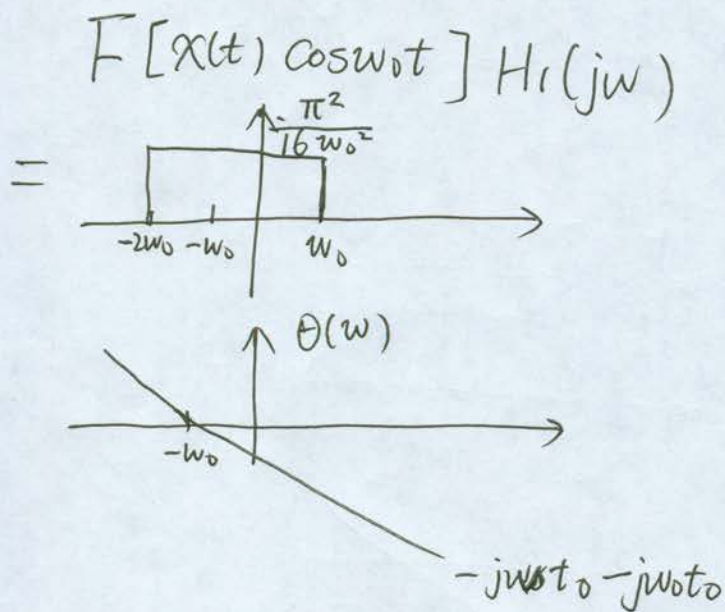 F[x(t) cosw₀t] H₁(jw)
=
π²
16w₀²
-2w₀ -w₀ w₀
θ(w)
-w₀
-jwt₀-jw₀t₀